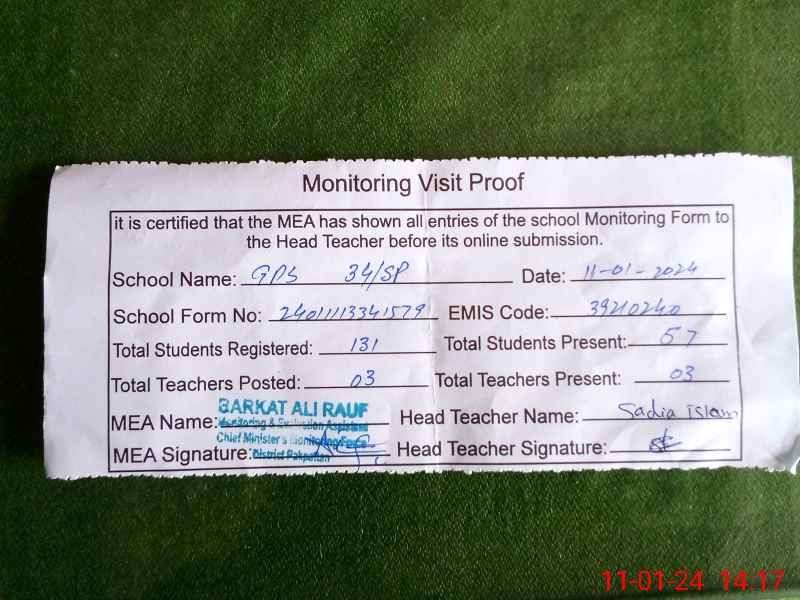 Monitoring Visit Proof
it is certified that the MEA has shown all entries of the school Monitoring Form to
the Head Teacher before its online submission.
School Name: GPS 34/SP Date: 11-01-2024
School Form No: 24011113341579 EMIS Code: 39210240
Total Students Registered: 131 Total Students Present: 57
Total Teachers Posted: 03 Total Teachers Present: 03
MEA Name: BARKAT ALI RAUF Head Teacher Name: Sadia islam
Monitoring & Evaluation Assistant
Chief Minister's Monitoring Force
MEA Signature: District Pakpattan Head Teacher Signature:
11-01-24 14:17